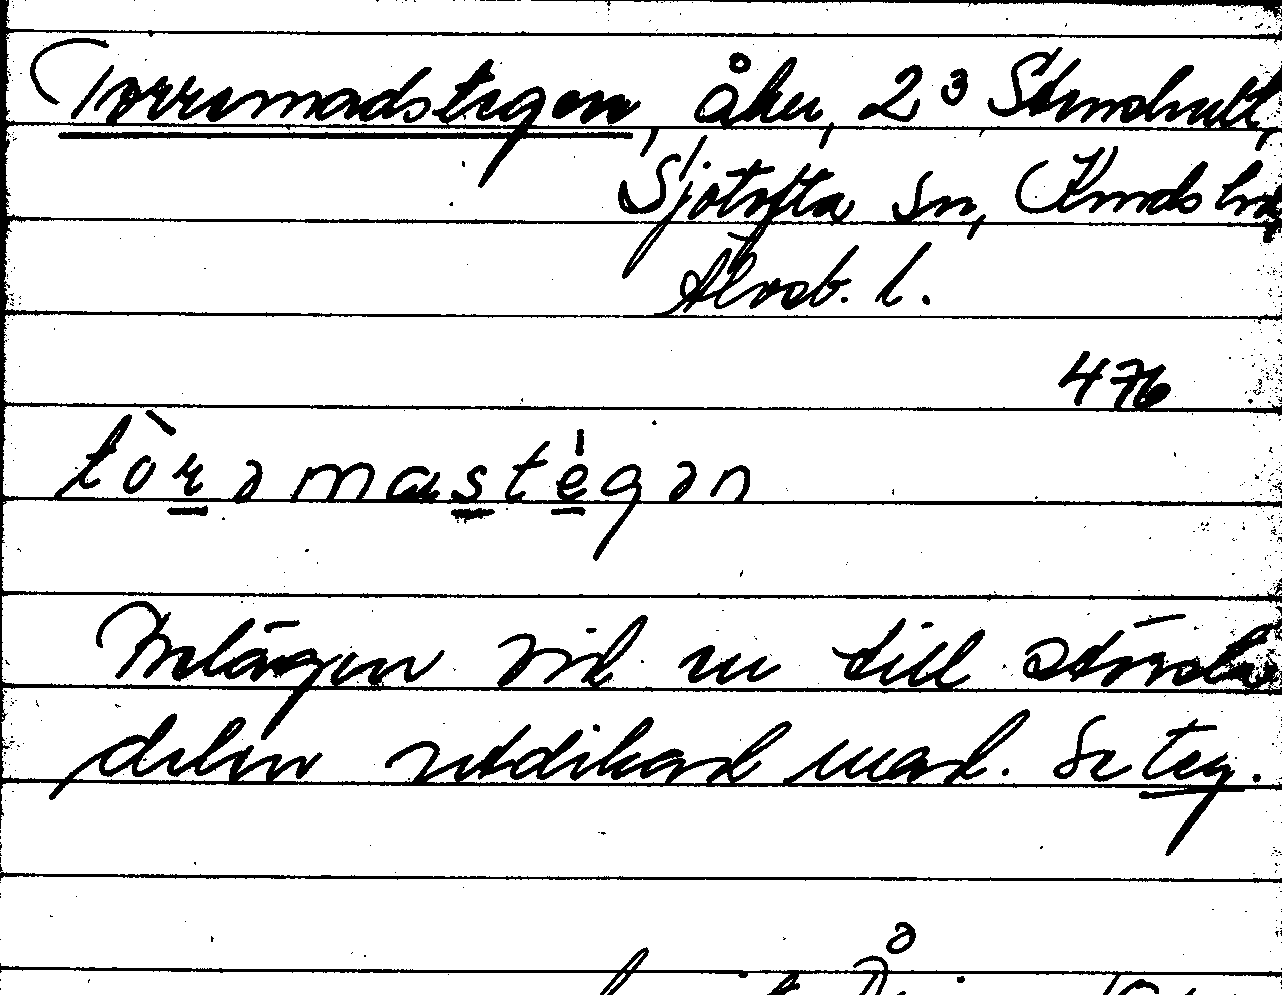 Torremadstegen, åker, 2³ Stendhult,
Sjötofta sn, Kinds hd,
Älvsb. l.
476
tòrəmastégən
Belägen vid en till större
delen utdikad mad. Se teg.